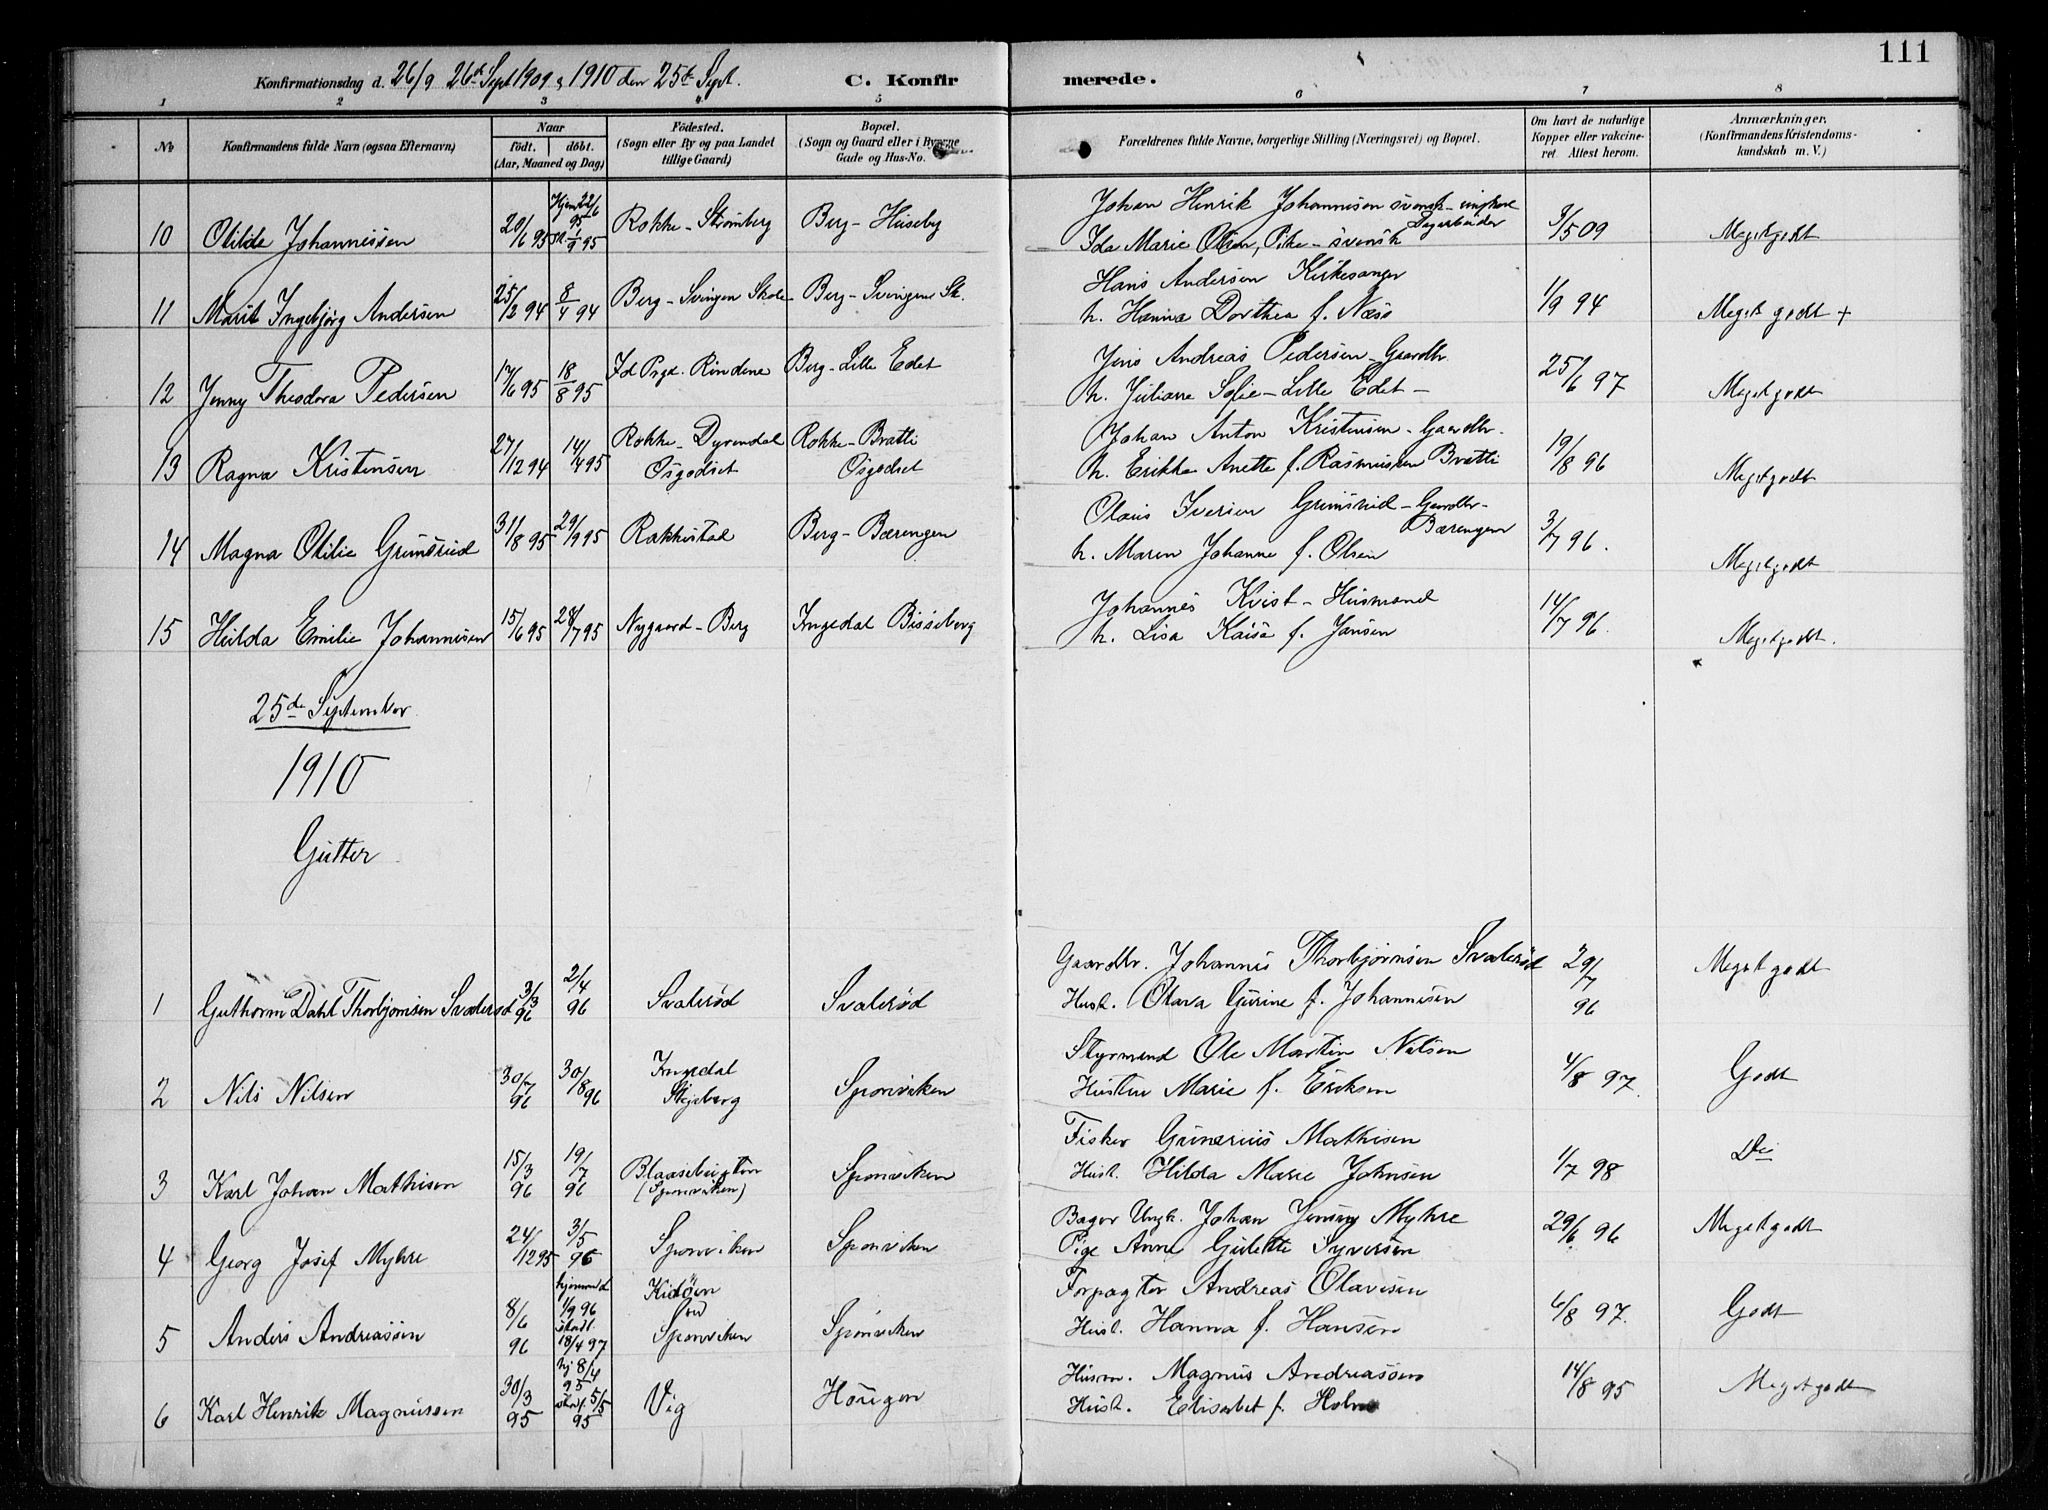 111
Konfirmationsdag d. 26/9 26de Sept 1909 & 1910 den 25de Sept. C. Konfirmerede.
1 2 3 4 5 6 7 8
No
Konfirmandens fulde Navn (ogsaa Efternavn)
Naar
födt. döbt.
(Aar, Maaned og Dag)
Födested.
(Sogn eller By og paa Landet
tillige Gaard)
Bopæl.
(Sogn og Gaard eller i Byerne
Gade og Hus-No.
Forældrenes fulde Navne, borgerlige Stilling (Næringsvei) og Bopæl.
Om havt de naturlige
Kopper eller vakcine-
ret Attest herom.
Anmærkninger.
(Konfirmandens Kristendoms-
kundskab m. V.)
10 Otilde Johannissen 20/6 95 Hjem 22/6 95 1/9 95 Rokke-Strømberg Berg-Huseby
Johan Henrik Johannisen svensk-ungkare Dagarbeider
Ida Marie Olsen, Pike-svensk 3/5 09 Megetgodt
11 Marit Ingebjørg Andersen 25/2 94 8/4 94 Berg-Svingen Skole Berg-Svingene Sk.
Hans Andersen Kirkesanger
h. Hanna Dorthea f. Næss 1/9 94 Meget godt +
12 Jenny Theodora Pedersen 17/6 95 18/8 95 Id Prgd. Rindene Berg-Lille Edet
Jens Andreas Pedersen-Gaardbr.
h. Juliane Sofie-Lille Edet- 25/6 97 Megetgodt
13 Ragna Kristensen 27/12 94 14/7 95 Rokke-Dyrendal Osgodset Rokke-Bratli Osgodset
Johan Anton Kristensen-Gaardbr.
h. Erikka Anette f. Rasmussen Bratli 19/8 96 Megetgodt
14 Magna Otilie Grimsrud 31/8 95 29/9 95 Rakkestad Berg-Bærengen
Olaus Iversen Grimsrud-Gaardbr- Bærengen
h. Maren Johanne f. Olsen 3/7 96. Megetgodt
15 Hilda Emilie Johannisen 15/6 95 28/7 95 Nygaard-Berg Ingedal Bisseberg
Johannes Kvist-Husmand
h. Lisa Kaisa f. Jansen 14/7 96. Megetgodt.
25de September
1910
Gutter
1 Guthorm Dahl Thorbjørnsen Svalerød 3/3 96 2/4 96 Svalerød Svalerød
Gaardbr. Johannes Thorbjørnsen Svalerød
Hust. Olava Gurine f. Johannisen 29/7 96 Megetgodt
2 Nils Nilsen 30/7 96 30/8 96 Ingedal Skjeberg Sponviken
Styrmand Ole Martin Nilsen
Hustru Marie f. Eriksen 4/8 97. Godt
3 Karl Johan Mathisen 15/3 96 19/7 96 (Sponviken) Sponviken
Fisker Gunerius Mathisen
Hust. Hilda Marie Johnsen 1/7 98 Do
4 Georg Josef Myhre 24/12 95 3/5 96 Sponviken Sponviken
Bager Ungk. Johan Jensen Myhre
Pige Anne Gulette Syversen 29/6 96 Megetgodt
5 Anders Andreassøn 8/6 96 hjemmed 1/9 96 stadf. 18/4 97 Kidöen ved Sponviken Sponviken
Forpagter Andreas Olavesen
Hust. Hanna f. Hansen 6/8 97. Godt
6 Karl Henrik Magnussen 30/3 95 hj 8/4 95 stadf. 5/5 95 Vig
Husm. Magnus Andreassøn
Hust. Elisabet f. Holm 14/8 95 Megetgodt